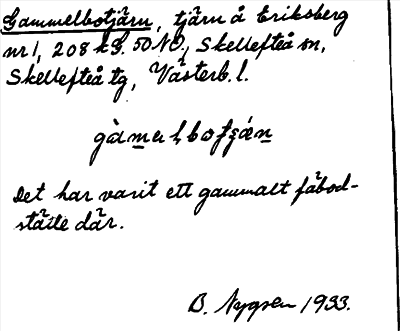 Gammelbotjärn, tjärn å Eriksberg
nr 1, 208 kS. 50 NO, Skellefteå sn,
Skellefteå tg, Västerb. l.
Det har varit ett gammalt fäbod-
ställe där.
B. Nygren 1933.